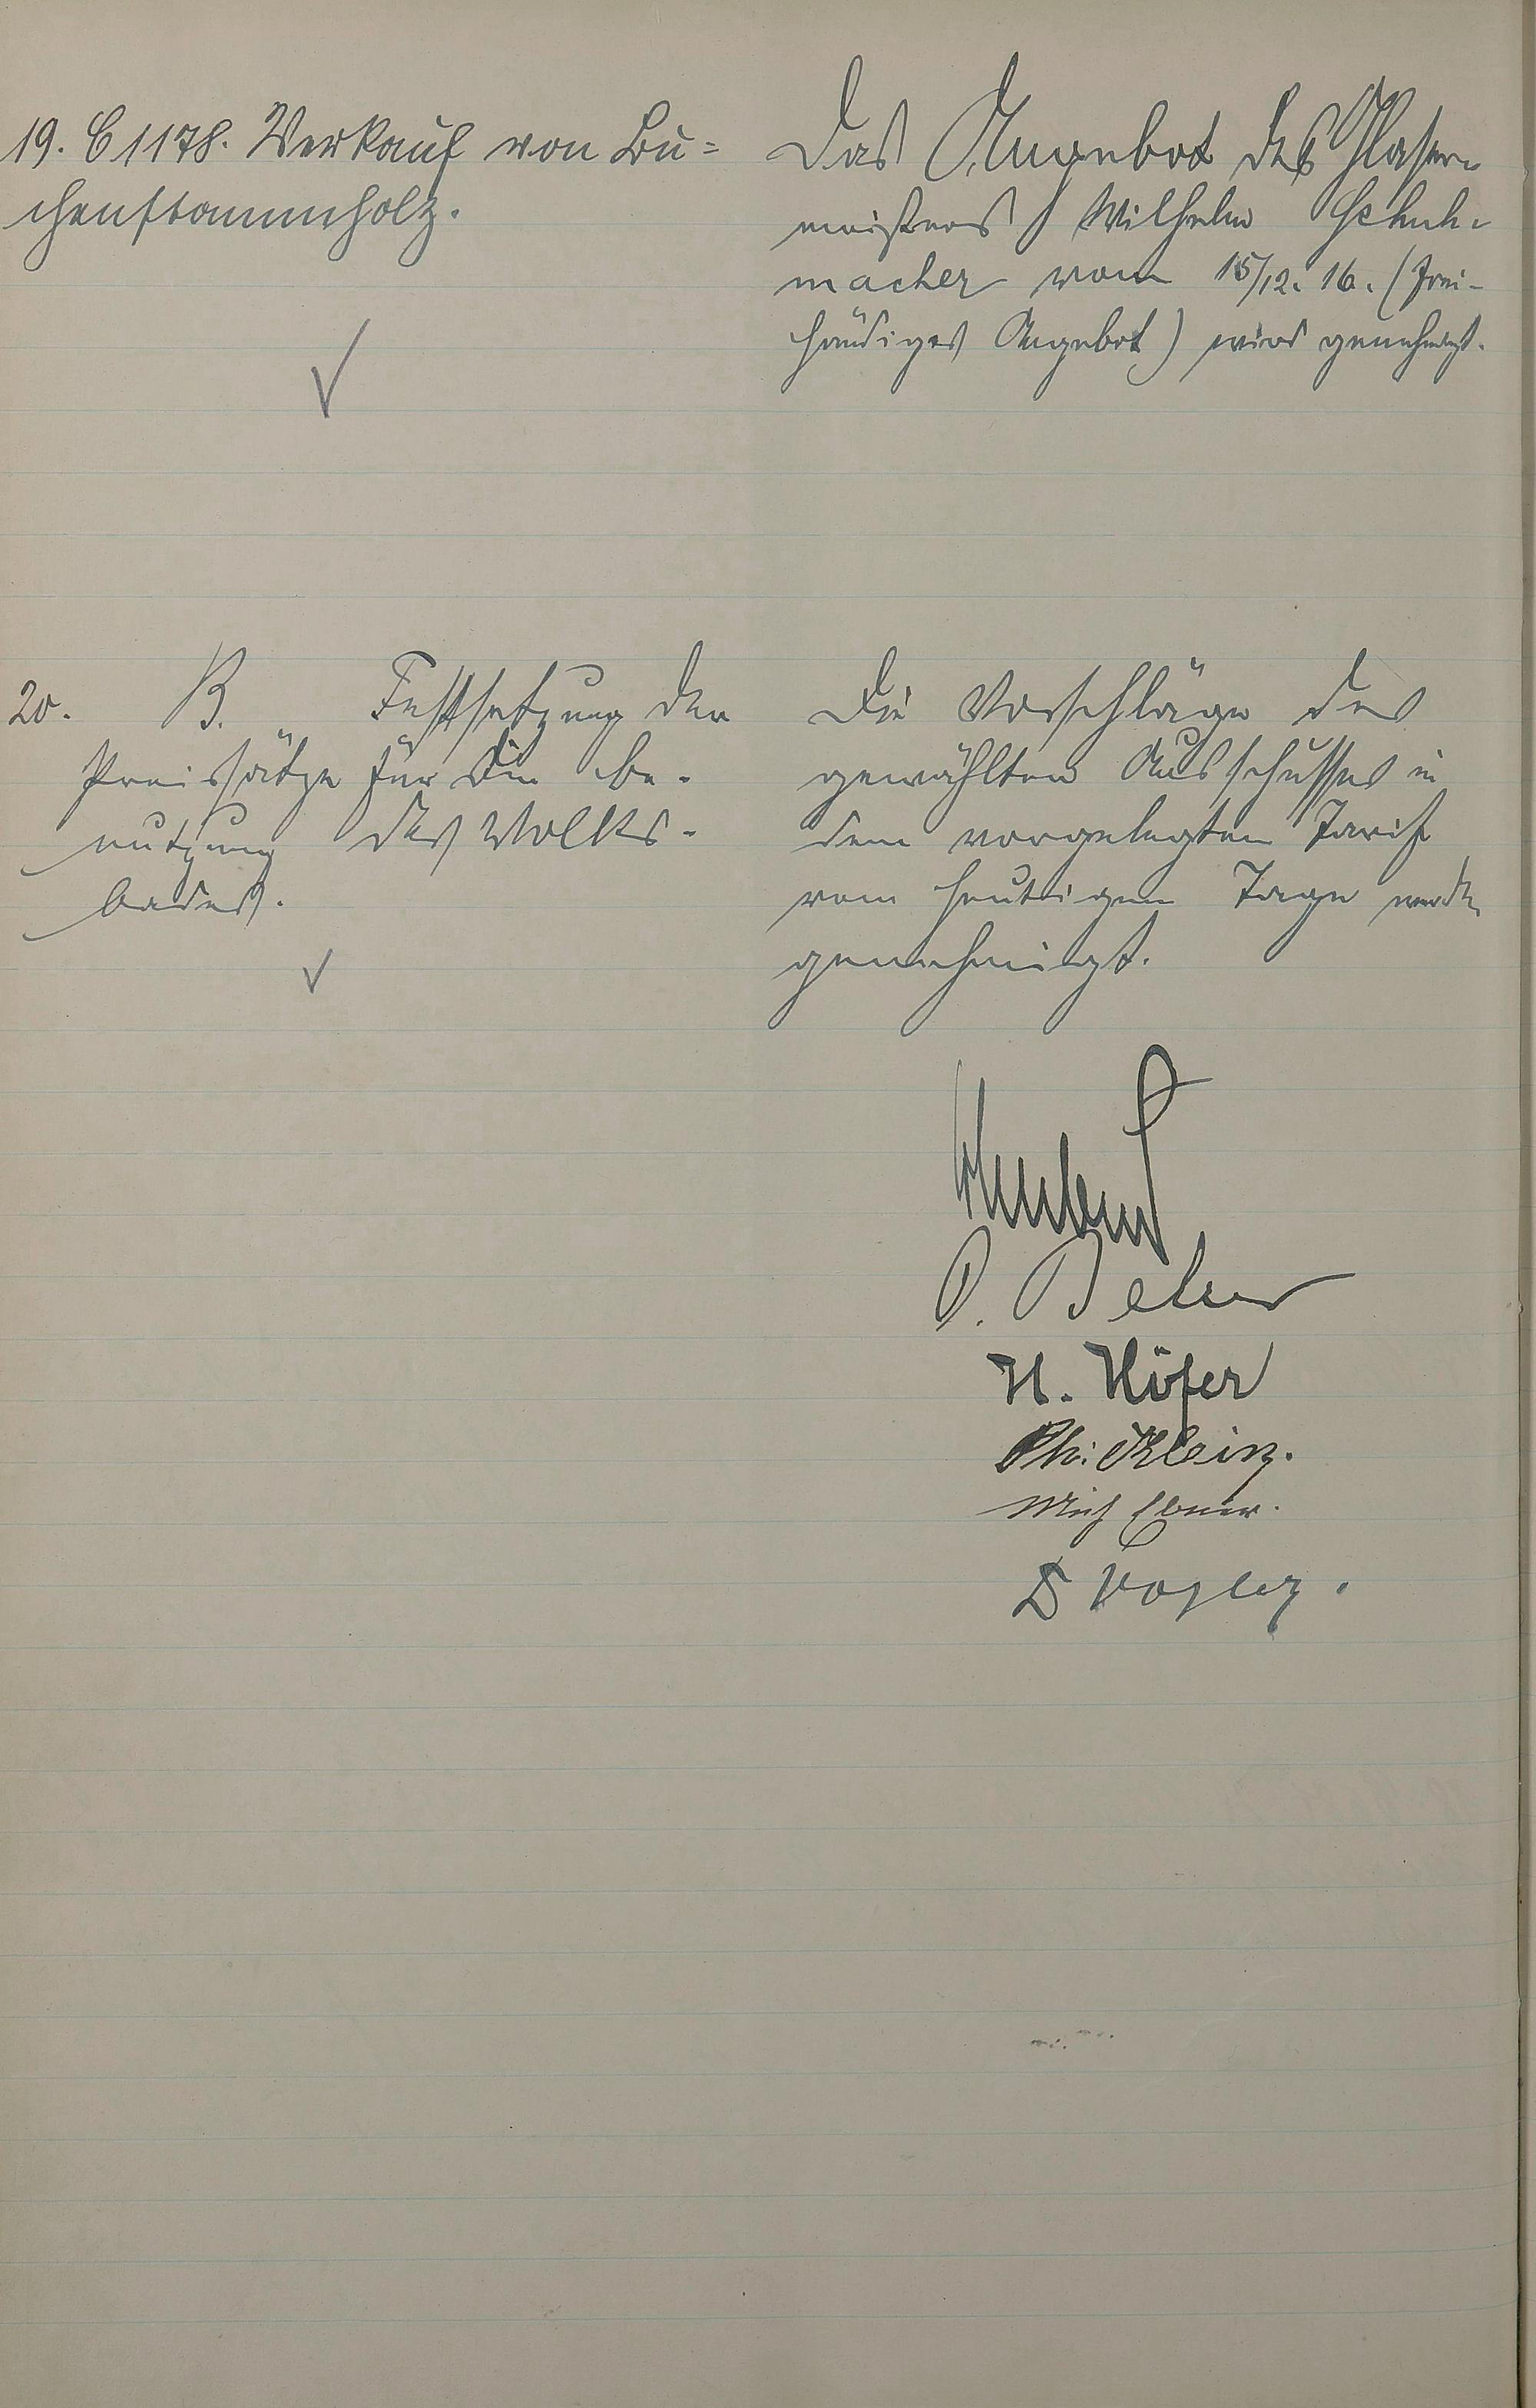 19. C 1178. Verkauf von Bu=
chenstammholz.
Das Angebot des Glaser-
meisters Wilhelm Schuh-
macher vom 15/12. 16. (Frei-
händiges Angebot) wird genehmigt.
20. B. Festsetzung der
Preissätze für die Be-
nutzung des Volks-
bades.
Die Vorschläge des
gewählten Ausschusses in
dem vorgelegten Tarif
vom heutigen Tage werden
genehmigt.
H. Höfer
Ph. Klein.
Ebner.
Vogler.